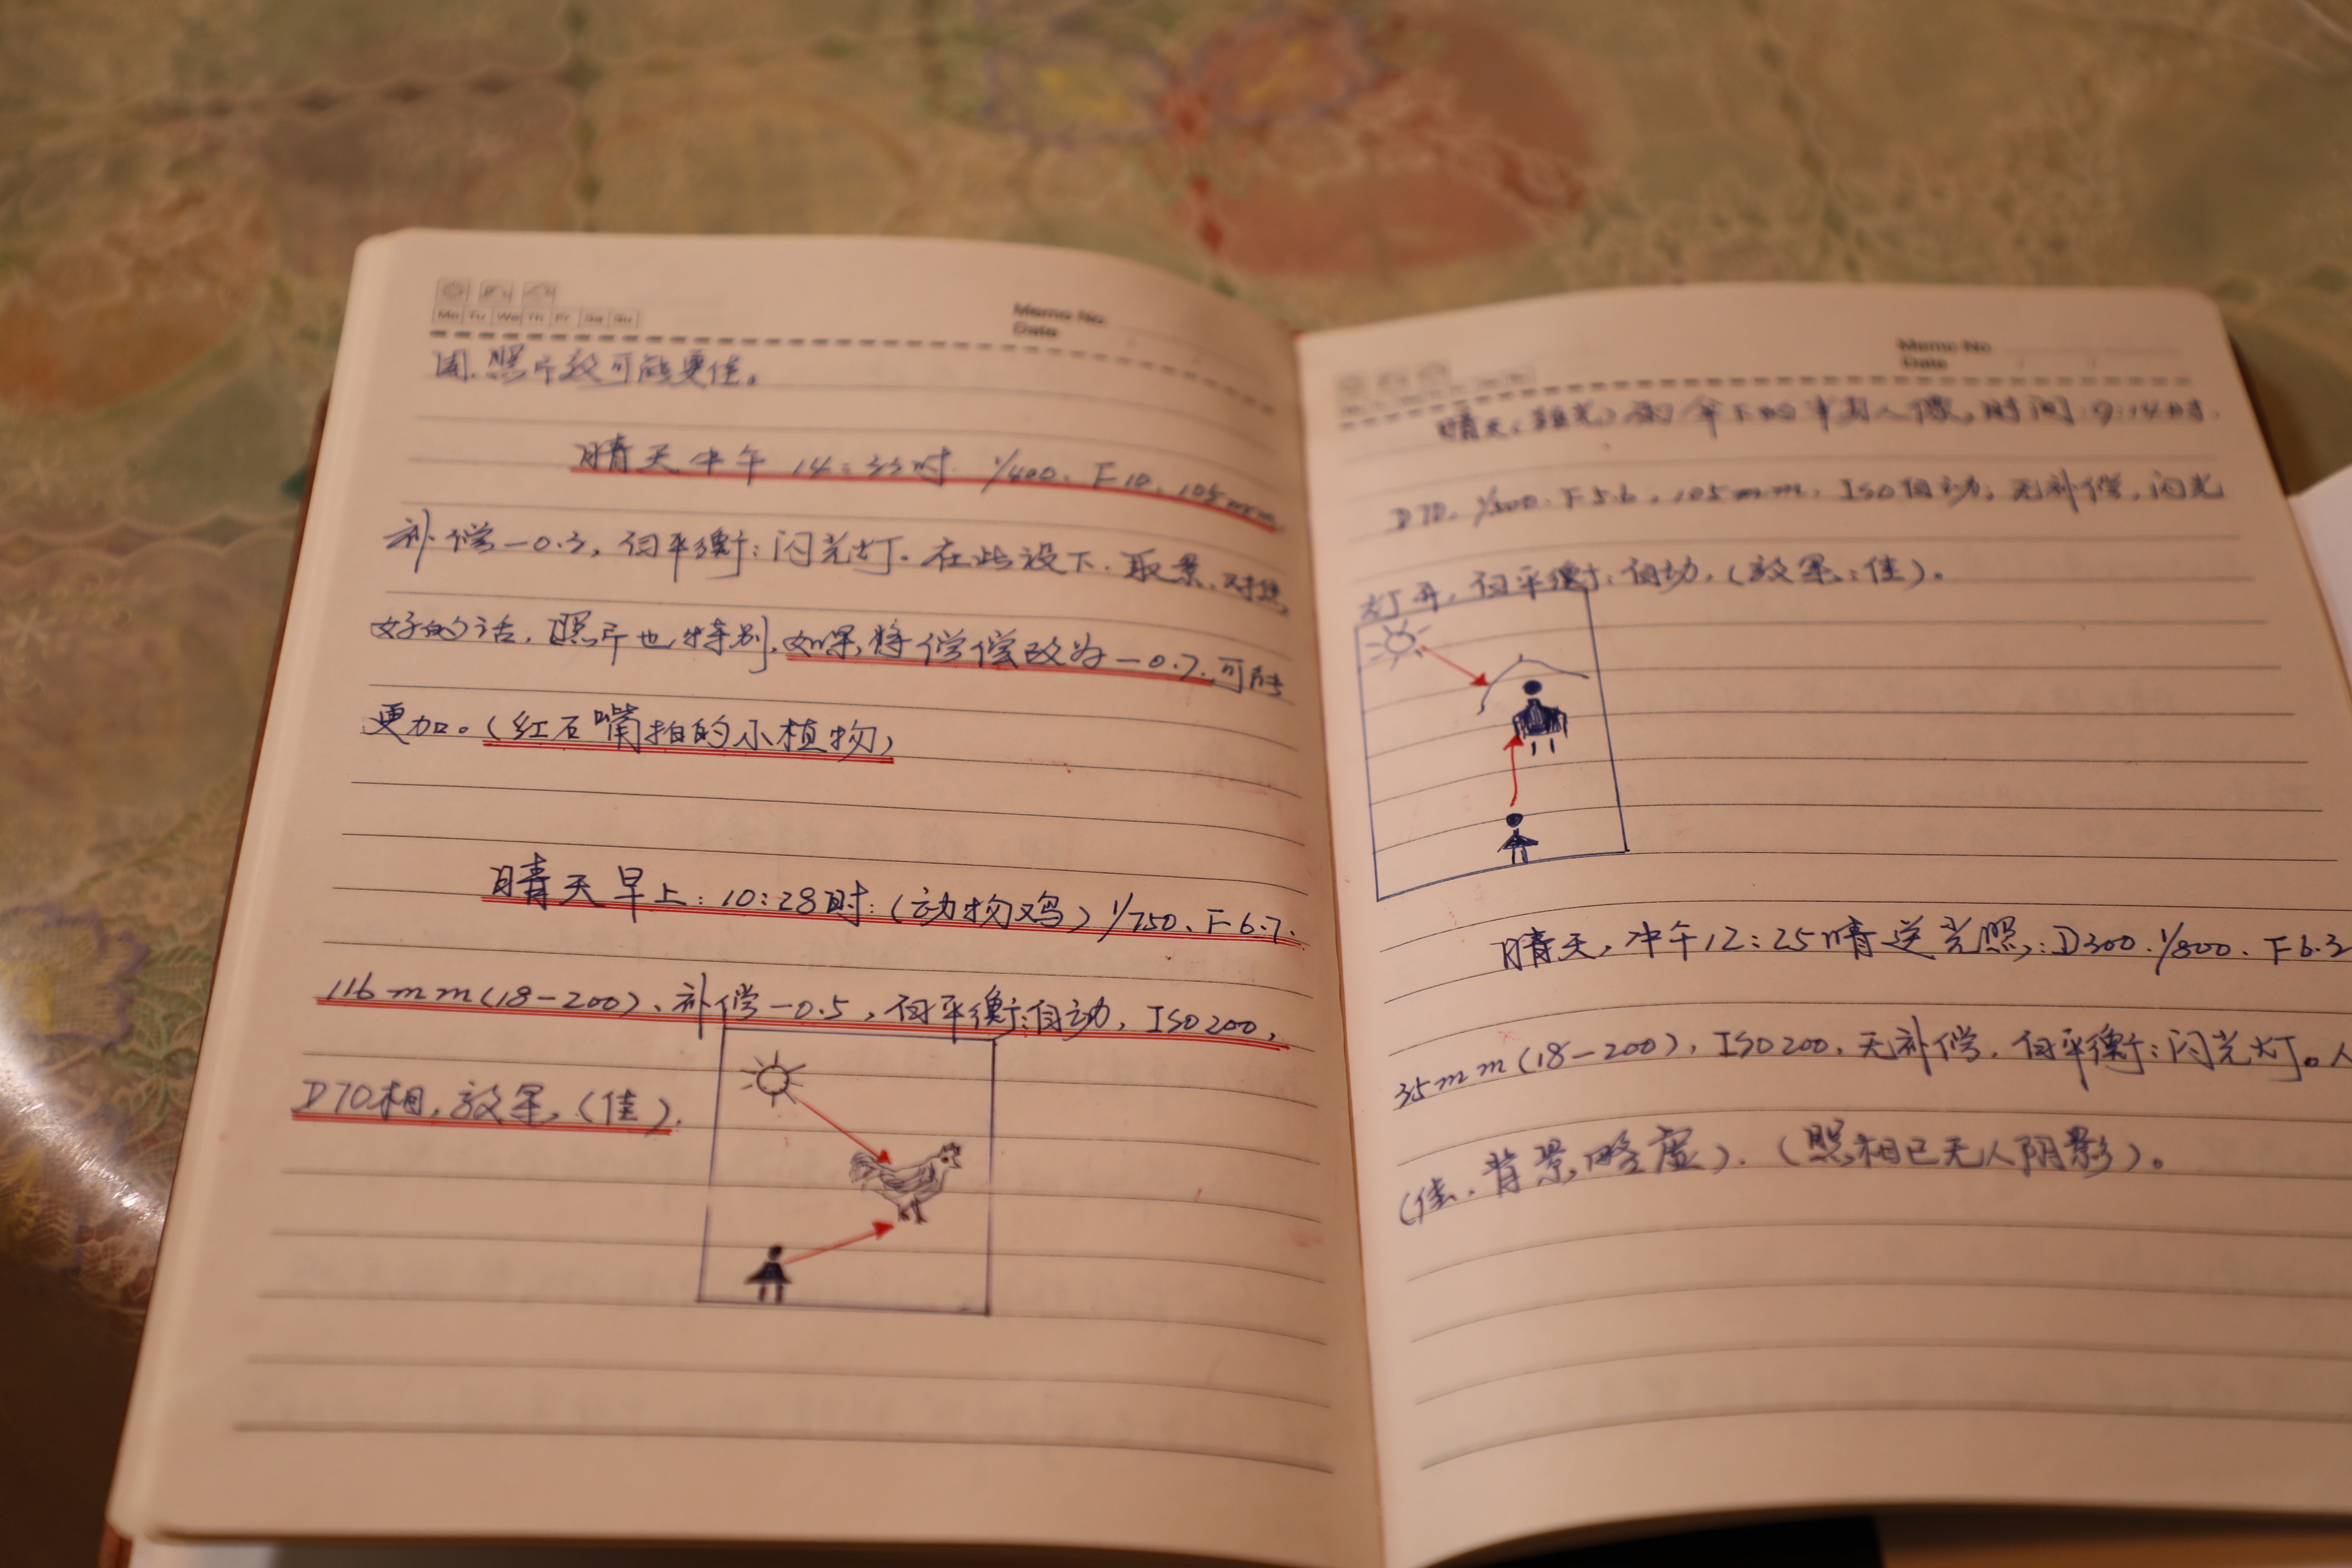 Mo Tu We Th Fr Sa Su
Memo No.
Date
围.照片效可能更佳。
晴天中午14:33时.1/400、F10、105mm
补偿-0.3,白平衡:闪光灯。在此设下.取景.对焦
好的话.照片也特别.如果将偿偿改为-0.7.可能
更加。(红石嘴拍的小植物)
晴天早上:10:28时:(动物鸡)1/750、F6.7.
116mm(18-200)、补偿-0.5,白平衡:自动,ISO200,
D70相,效果,(佳).
Memo No.
Date
晴天,伞下的半身人像,时间:9:14时.
D70.F5.6,105mm,ISO自动,无补偿,闪光
灯开,白平衡:自动,(效果:佳)。
晴天,中午12:25晴逆光照,:D300.1/800.F6.3
35mm(18-200),ISO200,无补偿.白平衡:闪光灯。人
(佳、背景略虚).(照相已无人阴影)。